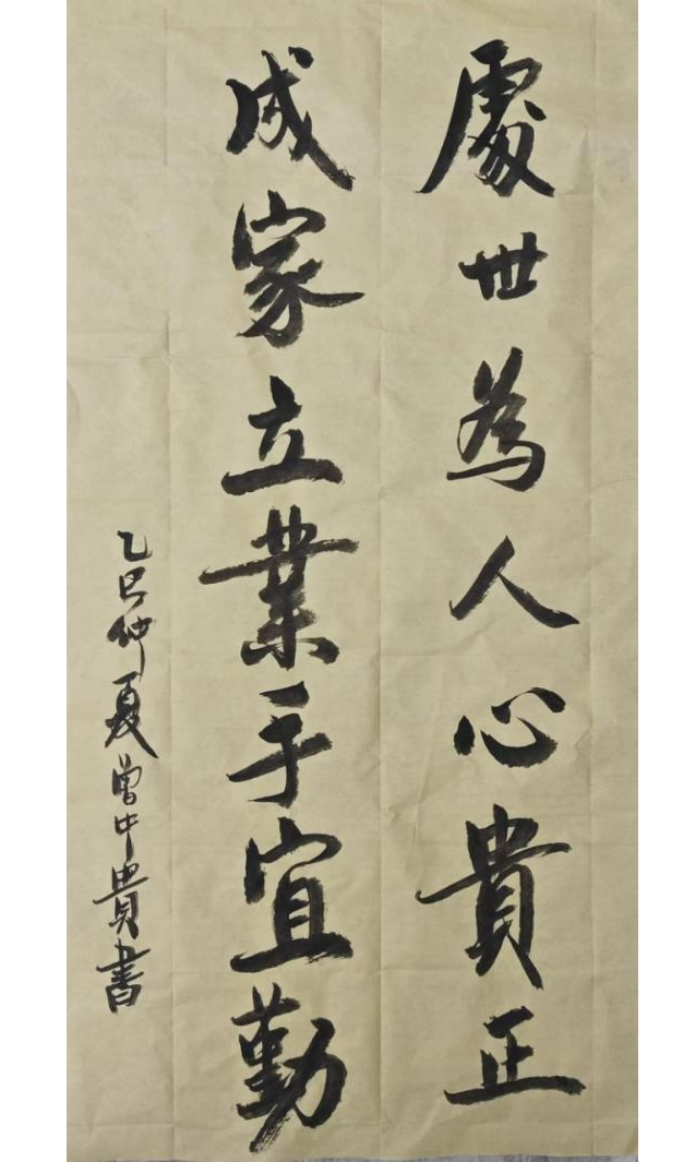 處世為人心貴正
成家立業手宜勤
乙巳仲夏曾中貴書